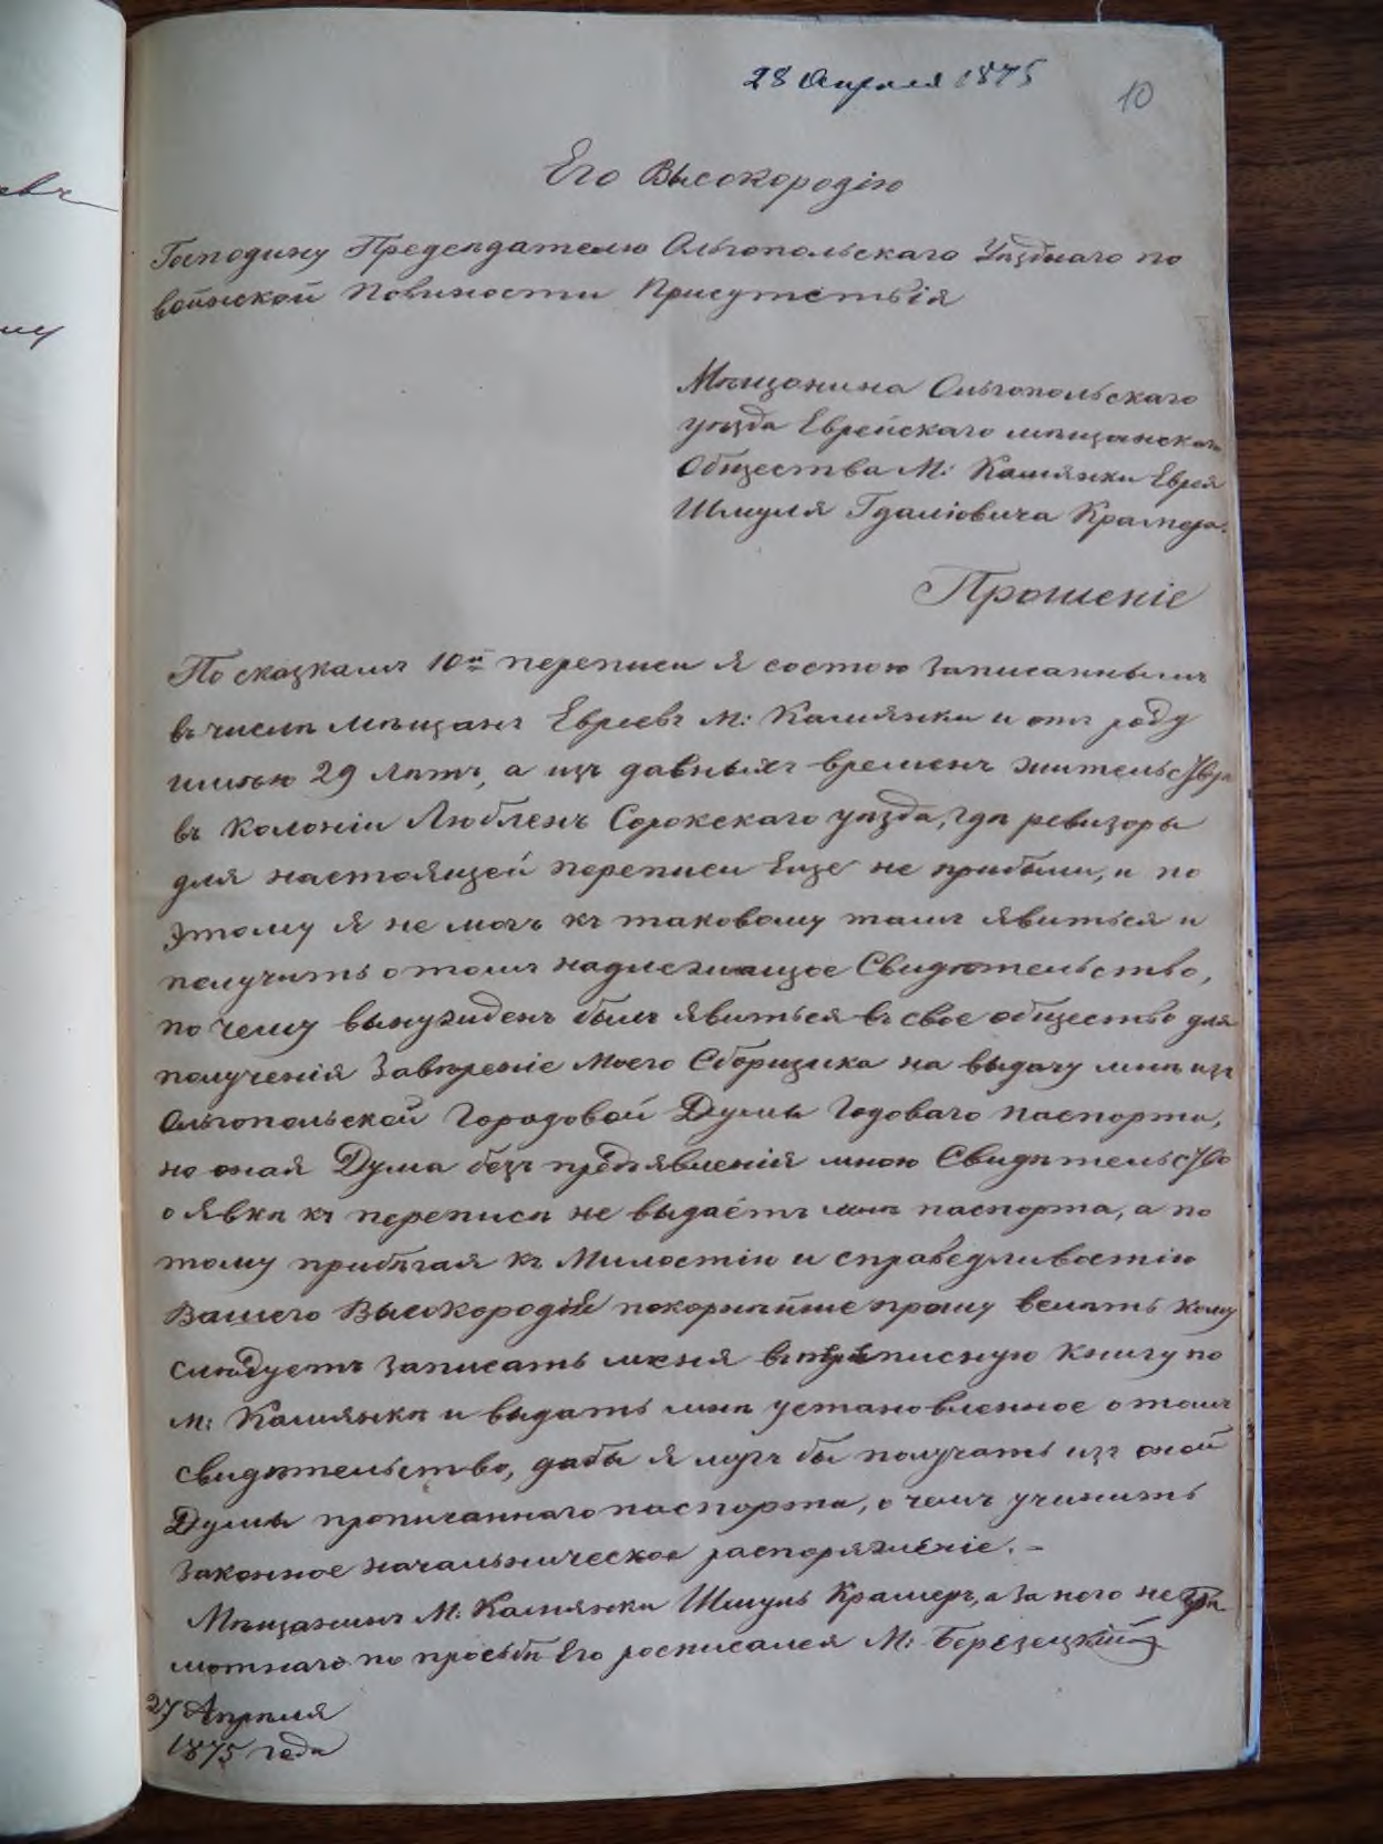 28 Апреля 1875
10
Его Высокородію
Господину Предсѣдателю Ольгопольскаго Уѣзднаго по
воинской Повиности Присутствія
Мѣщанина Ольгопольскаго
уѣзда Еврейскаго мѣщанскаго
Общества М: Камянки Еврея
Шмуля Гдаліовича Крамера.
Прошеніе
По сказкамъ 10й переписи я состою записаннымъ
въ числѣ мѣщанъ Евреевъ М: Камянки и отъ роду
имѣю 29 лѣтъ, а изъ давныхъ временъ жительствую
въ Колоніи Любленъ Сорокскаго уѣзда, гдѣ ревизоры
для настоящей переписи еще не прибыли, и по
этому я не могъ къ таковому тамъ явиться и
получить о томъ надлежащое Свидѣтельство,
по чему вынужденъ былъ явиться въ свое общество для
полученія Завѣреніе моего Сборщика на выдачу мнѣ изъ
Ольгопольской Городовой Думы Годоваго паспорта,
но оная Дума безъ предъявленія мною Свидѣтельство
о явкѣ къ переписи не выдаётъ мнѣ паспорта, а по
тому прибѣгая къ Милостію и справедливостію
Вашего Высокородія покорнѣйше прошу велѣть кому
слѣдуетъ записать меня въ переписную книгу по
м: Камянкѣ и выдать мнѣ установленное о томъ
свидѣтельство, дабы я могъ бы получать изъ оной
Думы прописаннаго паспорта, о чемъ учинить
законное начальническое распоряженіе. –
Мѣщанинъ М: Камянки Шмуль Крамеръ, а за него негра
мотнаго по просьбѣ Его росписался М: Березецкій
27 Апрѣля
1875 года